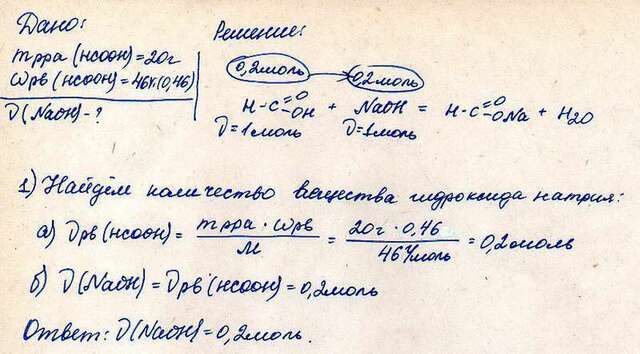 Дано:
mр-ра (HCOOH) = 20г
ωрв (HCOOH) = 46% (0,46)
ν (NaOH) - ?
Решение:
0,2моль → 0,2моль
H-C=O-OH + NaOH = H-C=O-ONa + H2O
ν=1моль ν=1моль
1) Найдём количество вещества гидроксида натрия:
а) νрв (HCOOH) = mр-ра · ωрв / M = 20г · 0,46 / 46г/моль = 0,2моль
б) ν (NaOH) = νрв (HCOOH) = 0,2моль
Ответ: ν (NaOH) = 0,2моль.